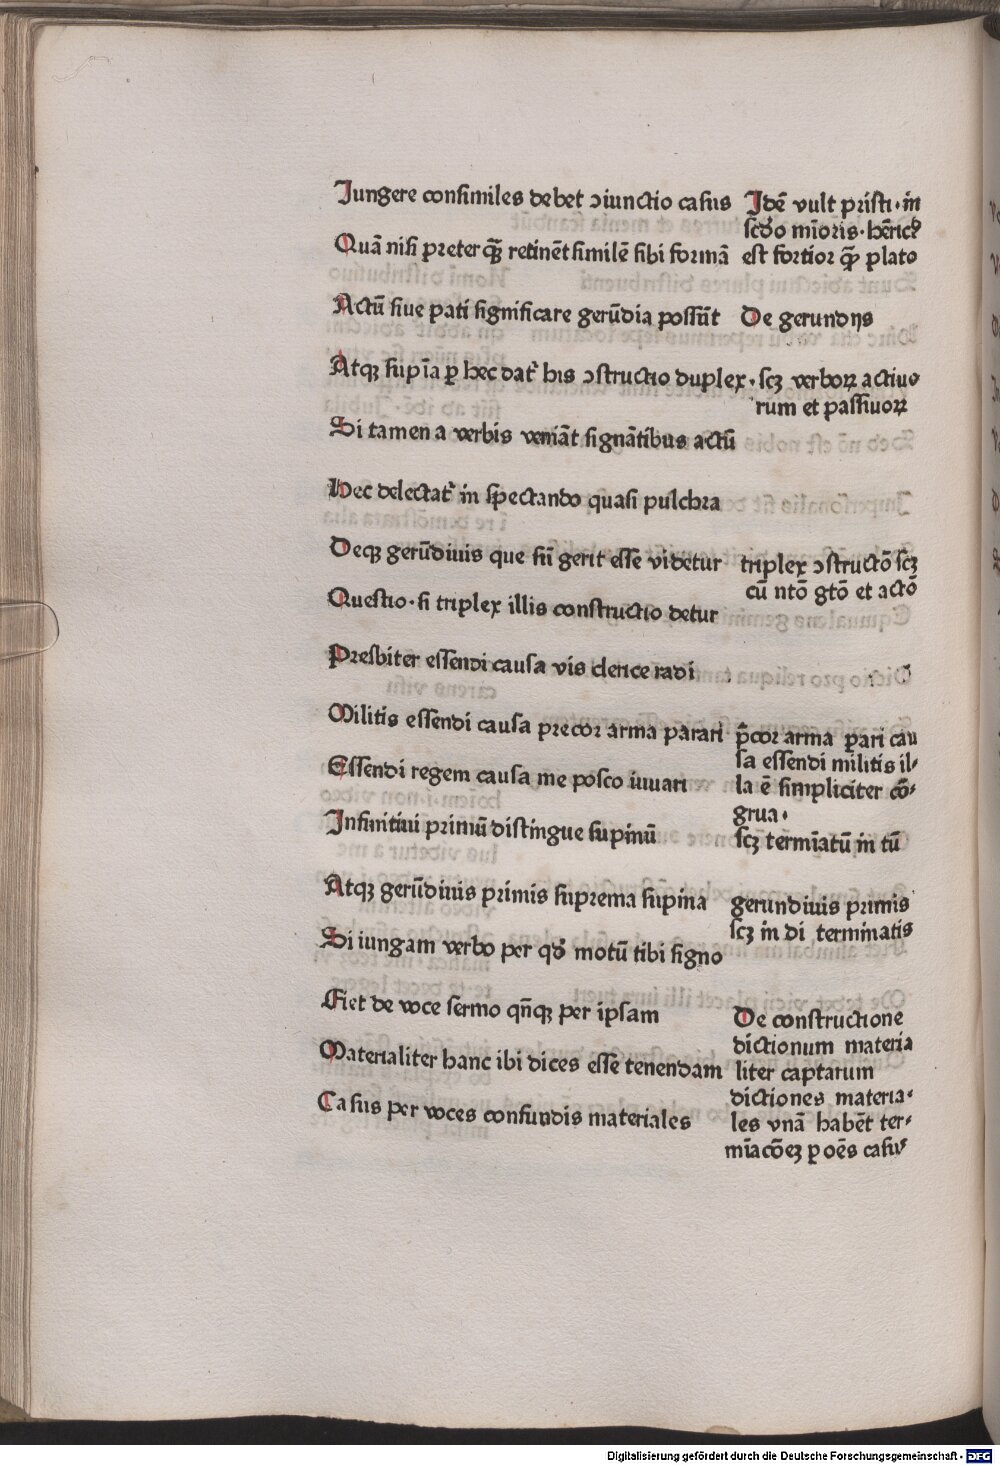 Jungere consimiles debet ɔiunctio casus
Quā nisi preter qꝫ̄ retinēt similē sibi formā
Actū siue pati significare gerūdia possūt
Atqꝫ supīa ꝑ hec dat᷒ his ɔstructio duplex.
Si tamen a verbis veniāt signātibus actū
Hec delectat᷒ in spectando quasi pulchra
Deqꝫ gerūdiuis que sū gerit esse videtur
Questio. si triplex illis constructio detur
Presbiter essendi causa vis clerice radi
Militis essendi causa precor arma parari
Essendi regem causa me posco iuuari
Infinitiui primū distingue supinū
Atqꝫ gerūdiuis primis suprema supina
Si iungam verbo per qd̄ motū tibi signo
Fiet de voce sermo qn̄qꝫ per ipsam
Materialiter hanc ibi dices esse tenendam
Casus per voces confundis materiales
Jdē vult pristi. in
scd̄o mīoris. hēric⁹
est fortior qꝫ̄ plato
De gerundijs
scꝫ verboꝝ actiuo
rum et passiuoꝝ
triplex ɔstructō scꝫ
cū ntō gtō et actō
p̄cor arma pari cau
sa essendi militis il-
la ē simpliciter cō-
grua.
scꝫ termīatū in tū
gerundiuis primis
scꝫ in di terminatis
De constructione
dictionum materia
liter captarum
dictiones materia-
les vnā habēt ter-
mīacōeꝫ ꝑ oēs casu⁹
Digitalisierung gefördert durch die Deutsche Forschungsgemeinschaft - DFG